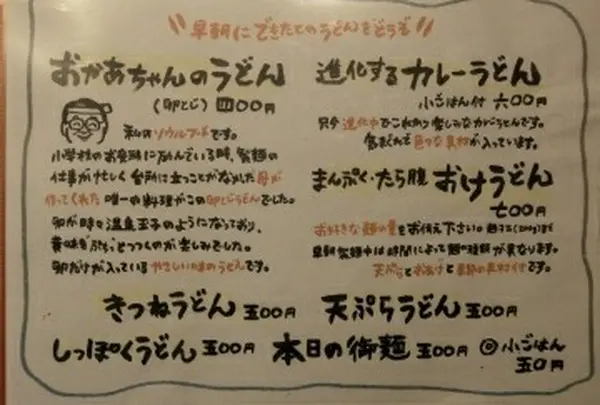 早朝にできたてのうどんをどうぞ
おかあちゃんのうどん
(卵とじ) 四〇〇円
私のソウルフードです。
小学校のお受験に励んでいる時、製麺の
仕事が忙しく台所に立つことがなかった母が
作ってくれた唯一の料理がこの卵とじうどんでした。
卵が時々温泉玉子のようになっており、
黄味をぷちっとつつくのが楽しみでした。
卵だけが入っているやさしい味のうどんです。
進化するカレーうどん
小ごはん付 六〇〇円
只今進化中でこれから楽しみなカレーうどんです。
気まぐれで色々な具材が入っています。
まんぷく・たら腹 おけうどん
七〇〇円
お好きな麺の量をお伝え下さい。
早朝製麺中は時間によって麺の種類が異なります。
天ぷらとおあげと季節の具材付です。
きつねうどん 五〇〇円
天ぷらうどん 五〇〇円
しっぽくうどん 五〇〇円
本日の御麺 五〇〇円
◎小ごはん
五〇円